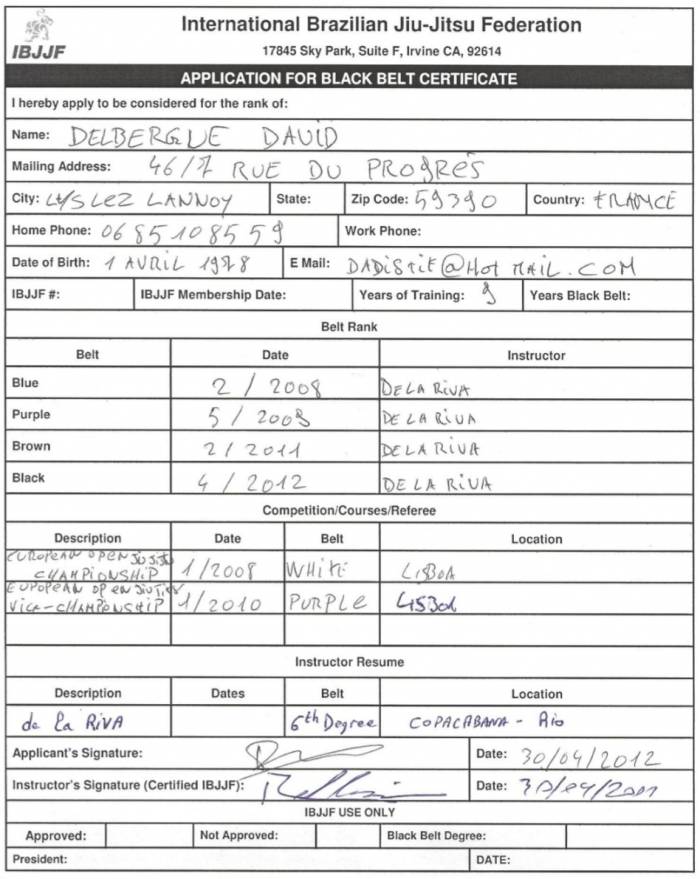 IBJJF
International Brazilian Jiu-Jitsu Federation
17845 Sky Park, Suite F, Irvine CA, 92614
APPLICATION FOR BLACK BELT CERTIFICATE
I hereby apply to be considered for the rank of:
Name: DELBERGUE DAVID
Mailing Address: 46/7 RUE DU PROGRÉS
City: LYS LEZ LANNOY State: Zip Code: 59390 Country: FRANCE
Home Phone: 0685108559 Work Phone:
Date of Birth: 1 AVRIL 1978 E Mail: DADISTIE@HOTMAIL.COM
IBJJF #: IBJJF Membership Date: Years of Training: 9 Years Black Belt:
Belt Rank
Belt Date Instructor
Blue 2 / 2008 DE LA RIVA
Purple 5 / 2009 DE LA RIVA
Brown 2 / 2011 DE LA RIVA
Black 4 / 2012 DE LA RIVA
Competition/Courses/Referee
Description Date Belt Location
EUROPEAN OPEN JIUJITSU
CHAMPIONSHIP 1/2008 WHITE LISBOA
EUROPEAN OPEN
VICE-CHAMPIONSHIP 1/2010 PURPLE LISBOA
Instructor Resume
Description Dates Belt Location
de la RIVA 6th Degree COPACABANA - Rio
Applicant's Signature: Date: 30/04/2012
Instructor's Signature (Certified IBJJF): Date:
IBJJF USE ONLY
Approved: Not Approved: Black Belt Degree:
President: DATE: